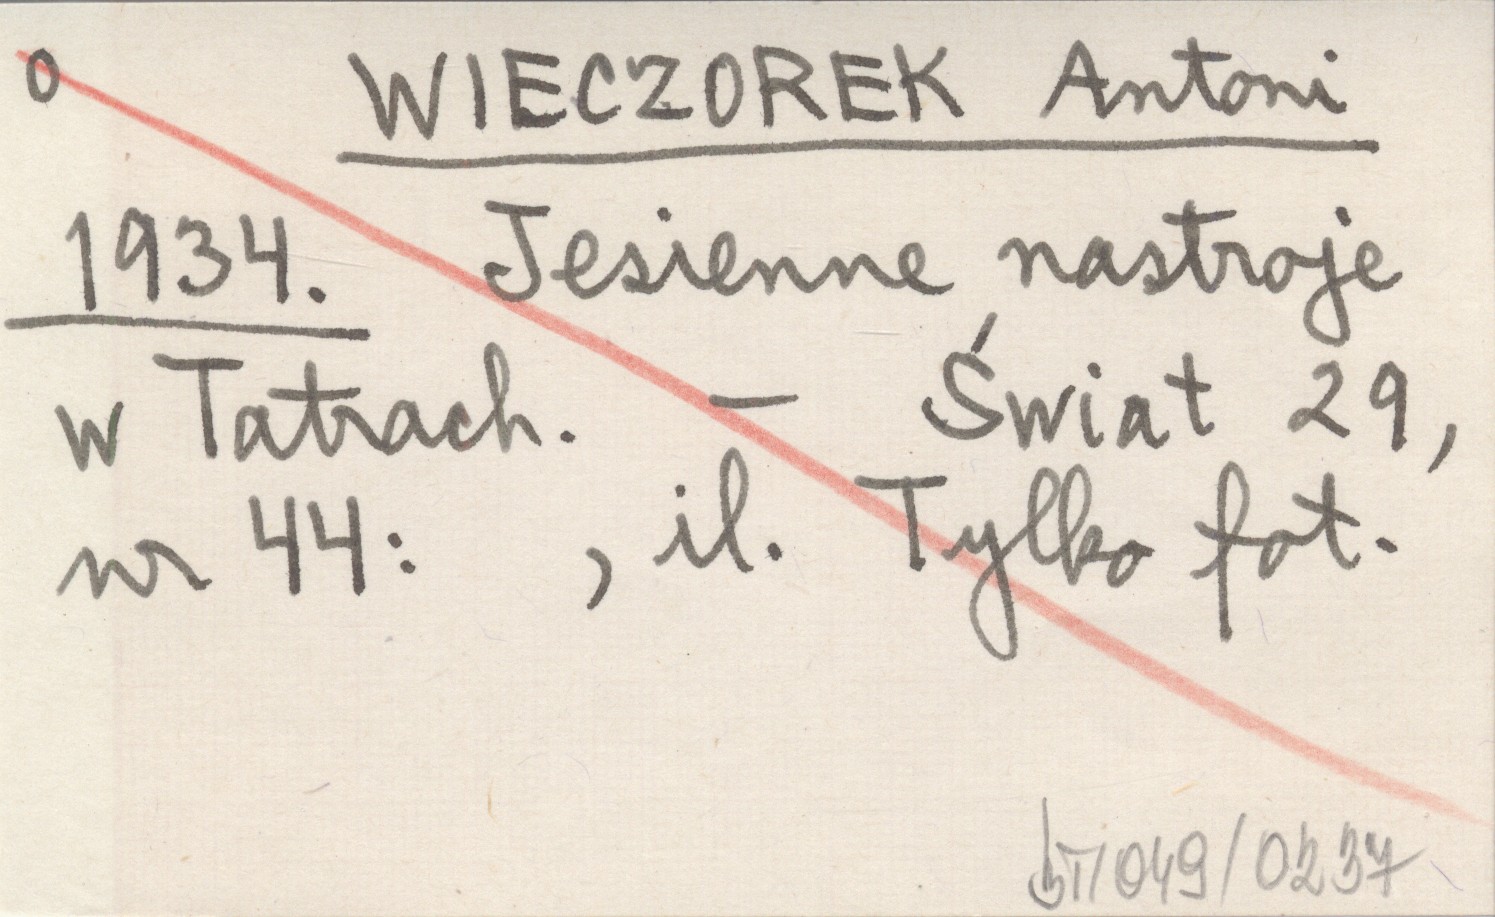 o WIECZOREK Antoni
1934. Jesienne nastroje
w Tatrach. – Świat 29,
nr 44: , il. Tylko fot.
bT/049/0237